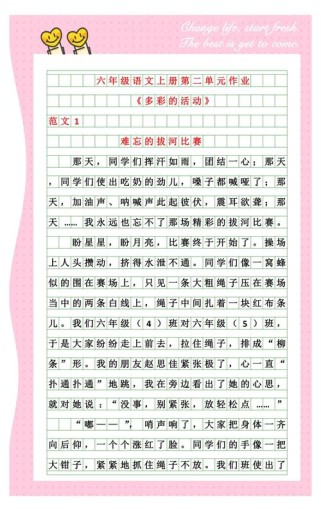 Change life, start fresh
The best is yet to come
六年级语文上册第二单元作业
《多彩的活动》
范文1
难忘的拔河比赛
那天，同学们挥汗如雨，团结一心；那天
，同学们使出吃奶的劲儿，嗓子都喊哑了；那
天，加油声、呐喊声此起彼伏，震耳欲聋；那
天……我永远也忘不了那场精彩的拔河比赛。
盼星星，盼月亮，比赛终于开始了。操场
上人头攒动，挤得水泄不通。同学们像一窝蜂
似的围在赛场上，只见一条大粗绳子压在赛场
当中的两条白线上，绳子中间扎着一块红布条
儿。我们六年级（4）班对六年级（5）班，
于是大家纷纷走上前去，拉住绳子，排成“柳
条”形。我的朋友赵思佳紧张极了，心一直“
扑通扑通”地跳，我在旁边看出了她的心思，
就对她说：“没事，别紧张，放轻松点……”
“嘟——”，哨声响了，大家把身体一齐
向后仰，一个个涨红了脸。同学们的手像一把
大钳子，紧紧地抓住绳子不放。我们班使出了